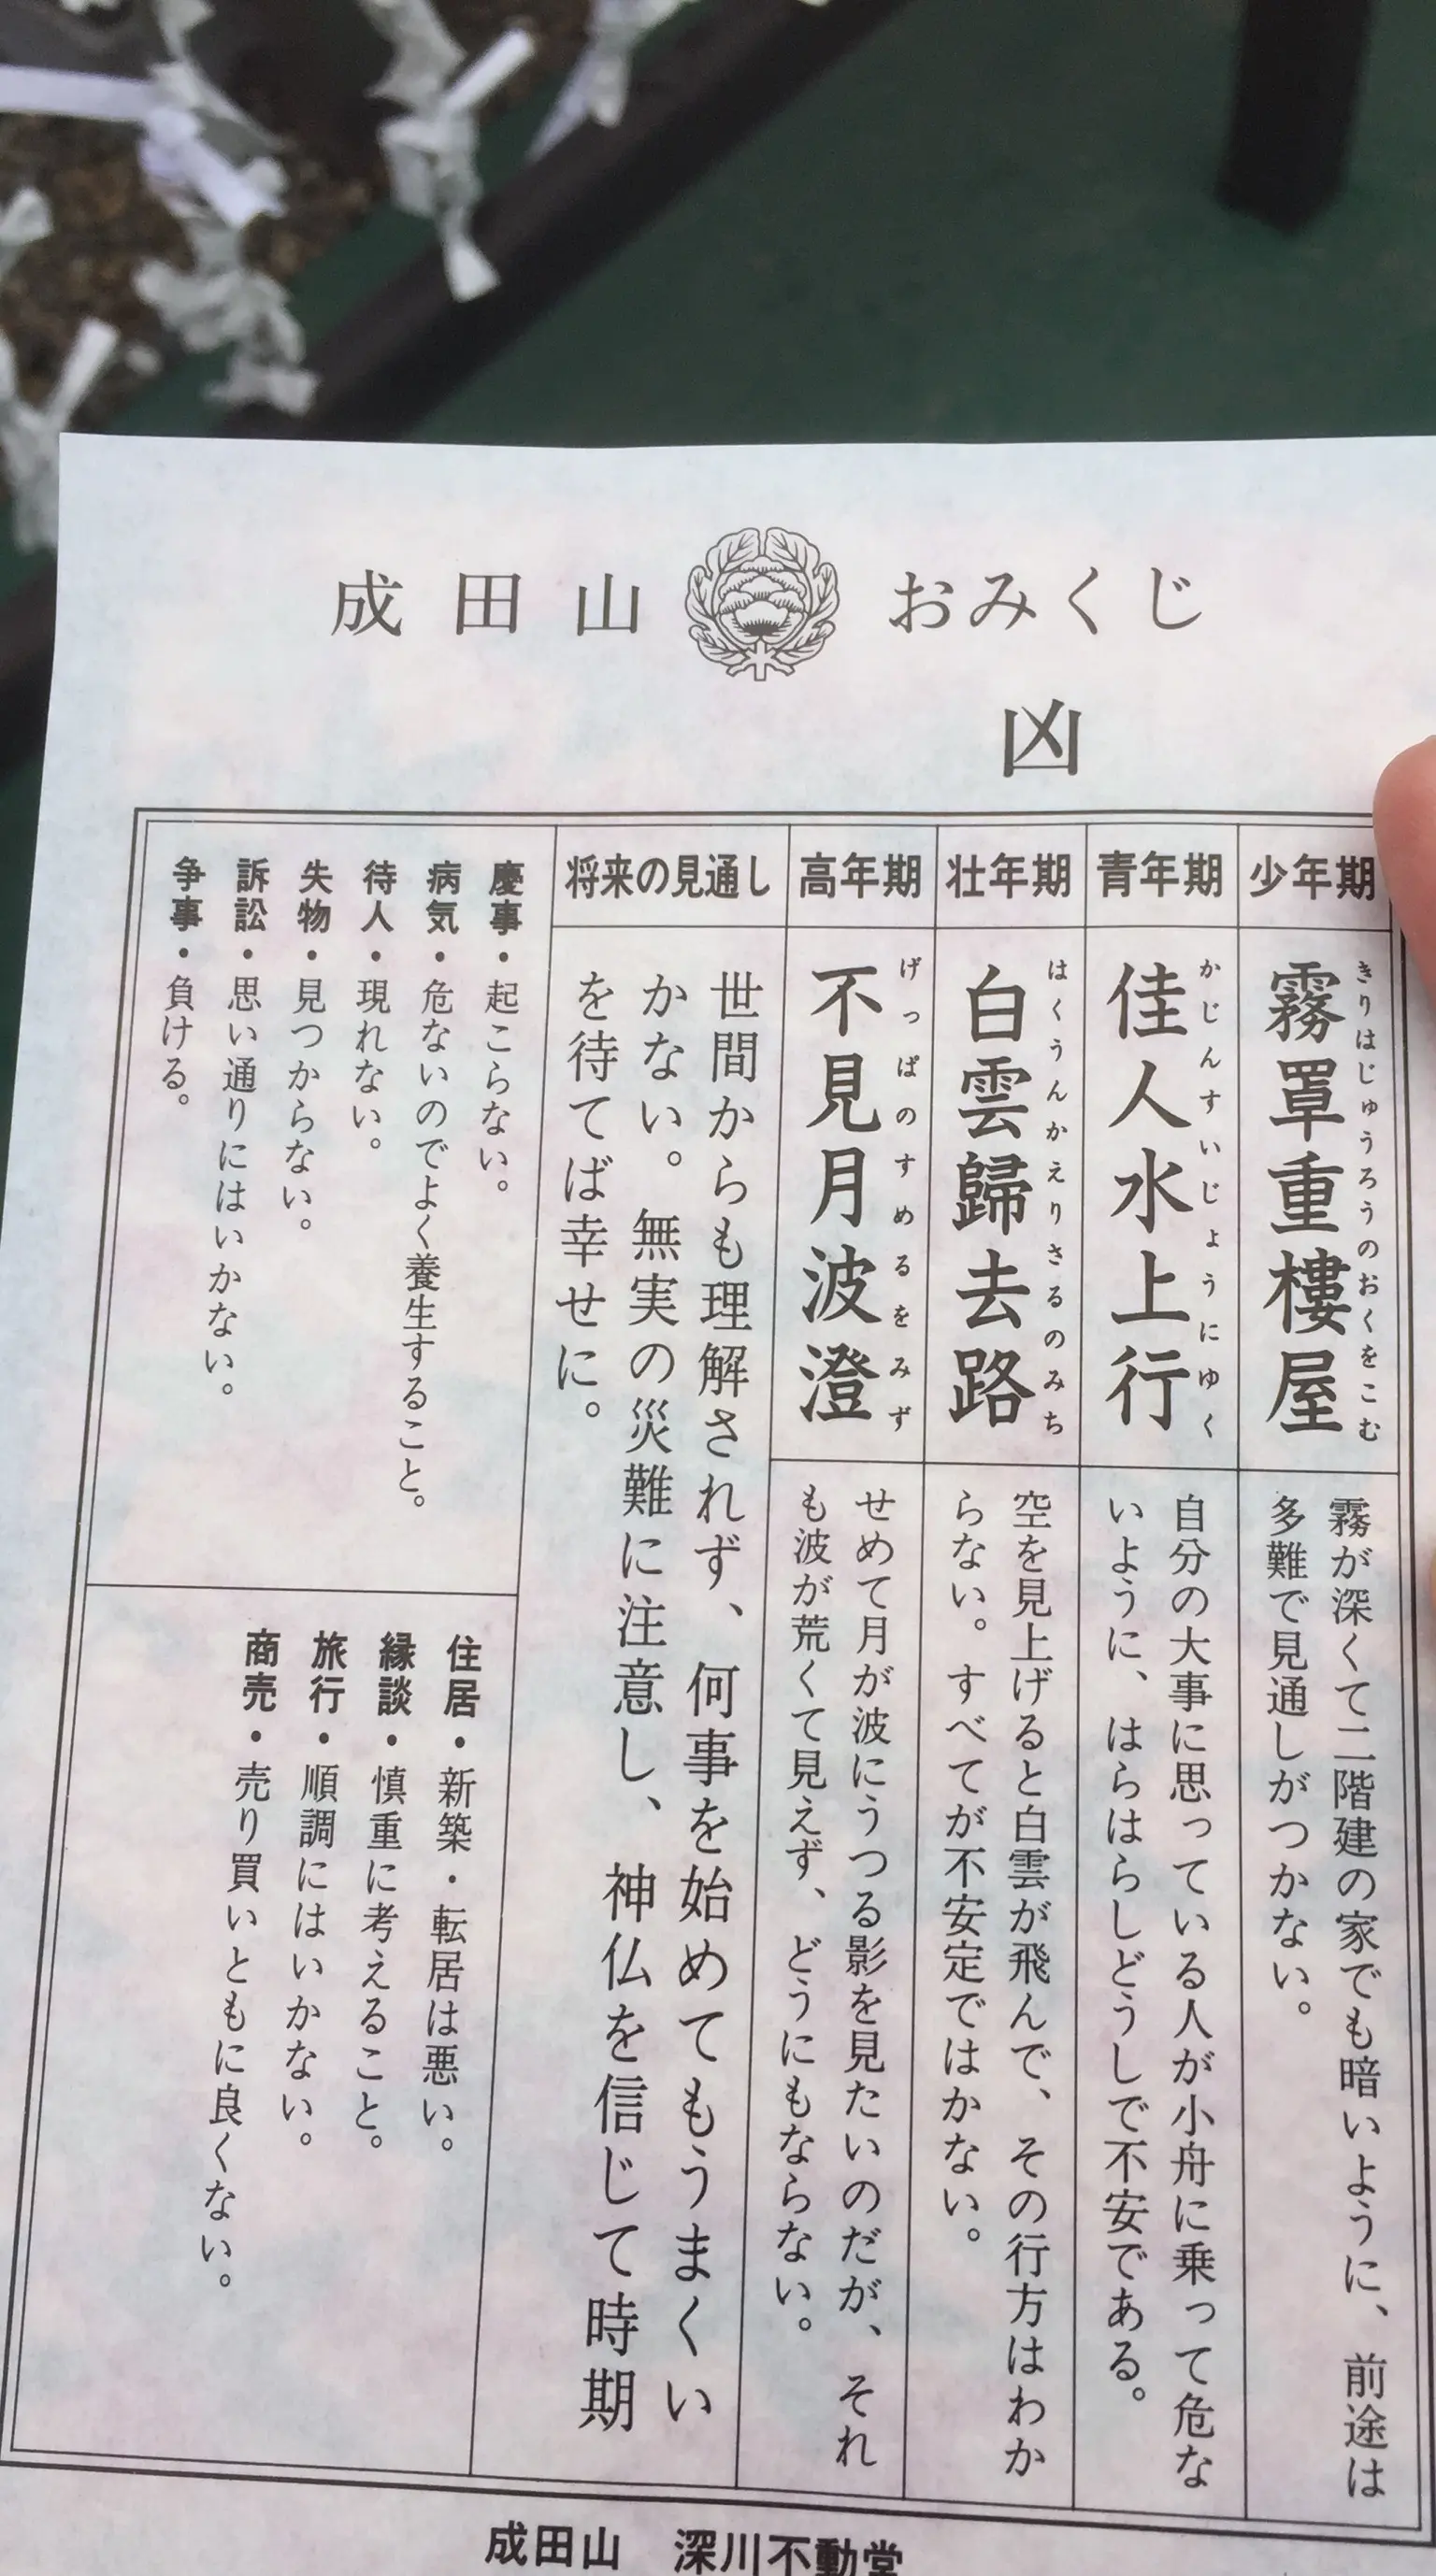 成田山 おみくじ
凶
少年期
きりはじゅうろうのおくをこむ
霧罩重樓屋
霧が深くて二階建の家でも暗いように、前途は
多難で見通しがつかない。
青年期
かじんすいじょうにゆく
佳人水上行
自分の大事に思っている人が小舟に乗って危な
いように、はらはらしどうしで不安である。
壮年期
はくうんかえりさるのみち
白雲歸去路
空を見上げると白雲が飛んで、その行方はわか
らない。すべてが不安定ではかない。
高年期
げっぱのすめるをみず
不見月波澄
せめて月が波にうつる影を見たいのだが、それ
も波が荒くて見えず、どうにもならない。
将来の見通し
世間からも理解されず、何事を始めてもうまくい
かない。無実の災難に注意し、神仏を信じて時期
を待てば幸せに。
慶事・起こらない。
病気・危ないのでよく養生すること。
待人・現れない。
失物・見つからない。
訴訟・思い通りにはいかない。
争事・負ける。
住居・新築・転居は悪い。
縁談・慎重に考えること。
旅行・順調にはいかない。
商売・売り買いともに良くない。
成田山 深川不動堂